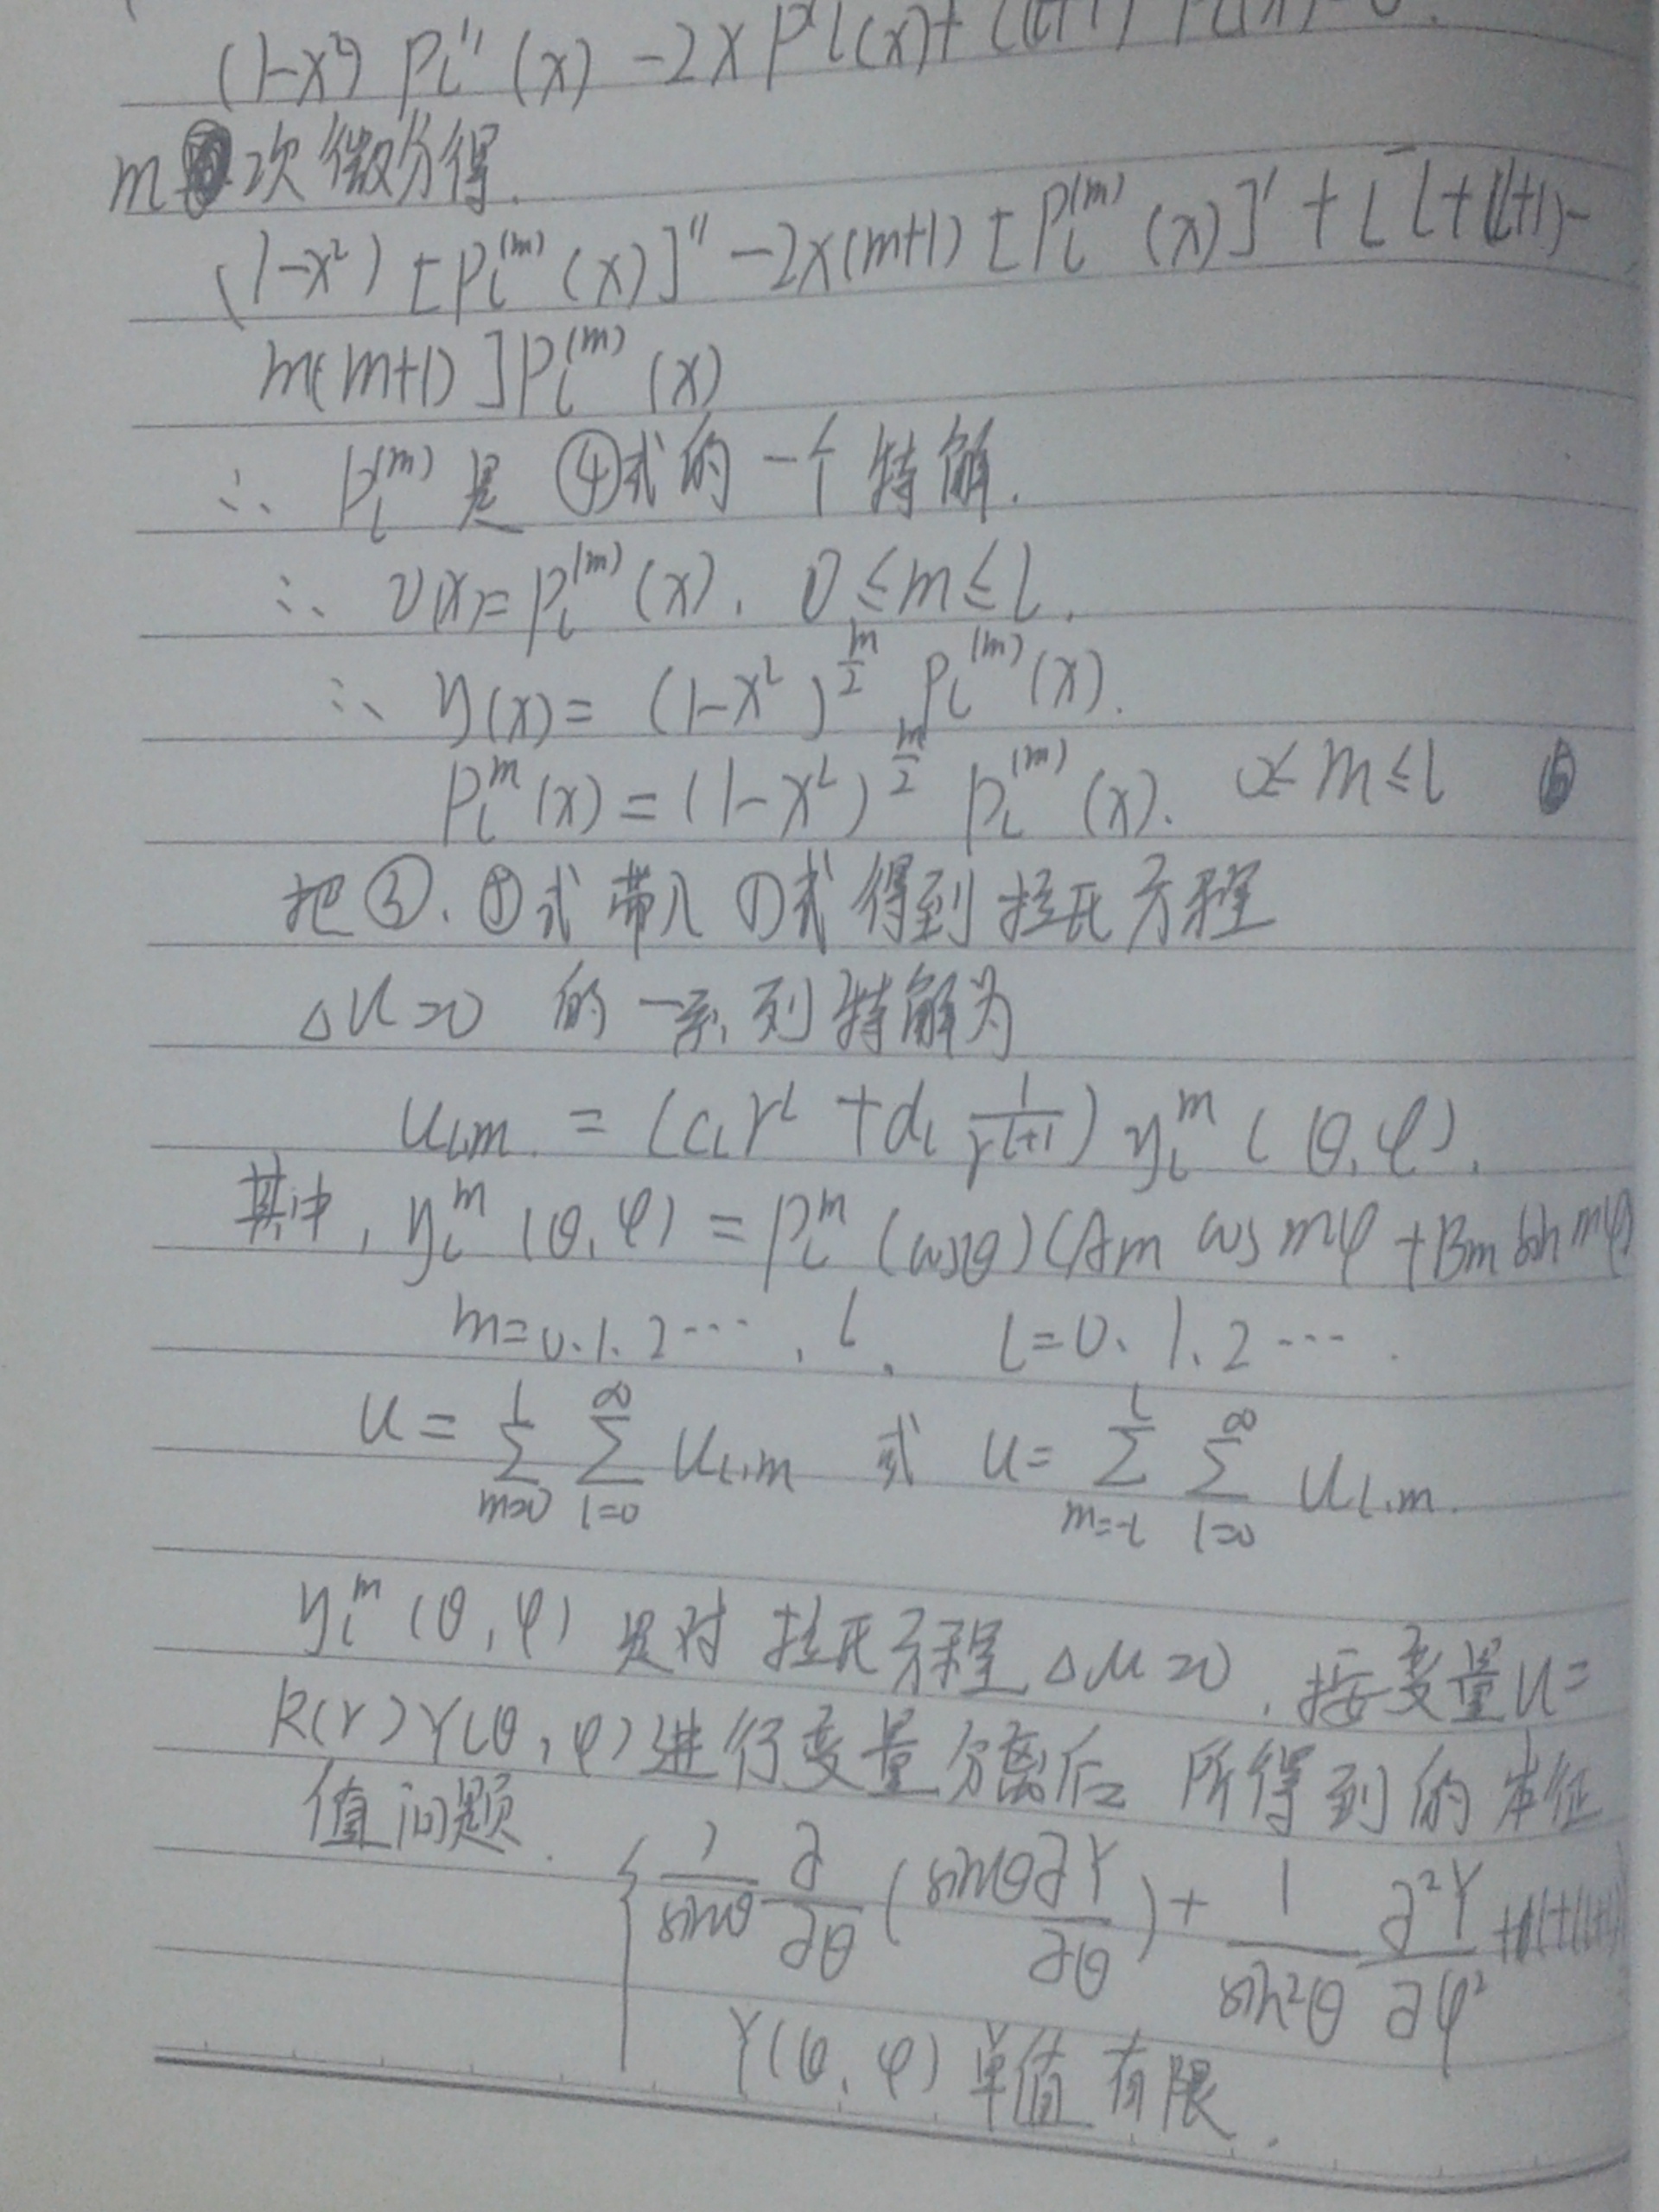 (1-x²) Pl''(x) -2x P'l(x)+ l(l+1) Pl(x)=0.
m次微分得.
(1-x²) [Pl^(m)(x)]'' -2x(m+1) [Pl^(m)(x)]' + [l+(l+1)-
m(m+1)]Pl^(m)(x)
∴ Pl^(m) 是 ④式的一个特解.
∴ v(x)=Pl^(m)(x). 0≤m≤l.
∴ y(x)= (1-x²)^(m/2) Pl^(m)(x).
Pl^m(x)=(1-x²)^(m/2) Pl^(m)(x). 0≤m≤l
把③、⑤式带入①式得到拉氏方程
△u=0 的一系列特解为
ul,m = (cl r^l + dl 1/r^(l+1)) yl^m(θ,φ).
其中, yl^m(θ,φ)=Pl^m(cosθ)(Am cos mφ+Bm sin mφ)
m=0、1、2…, l. l=0、1、2….
u=∑(m=0 to l) ∑(l=0 to ∞) ul,m 或 u=∑(m=-l to l) ∑(l=0 to ∞) ul,m.
yl^m(θ,φ) 是对拉氏方程△u=0, 按变量u=
R(r)Y(θ,φ)进行变量分离后 所得到的本征
值问题.
{ 1/sinθ ∂/∂θ (sinθ∂Y/∂θ)+ 1/sin²θ ∂²Y/∂φ²
Y(θ,φ)单值有限.